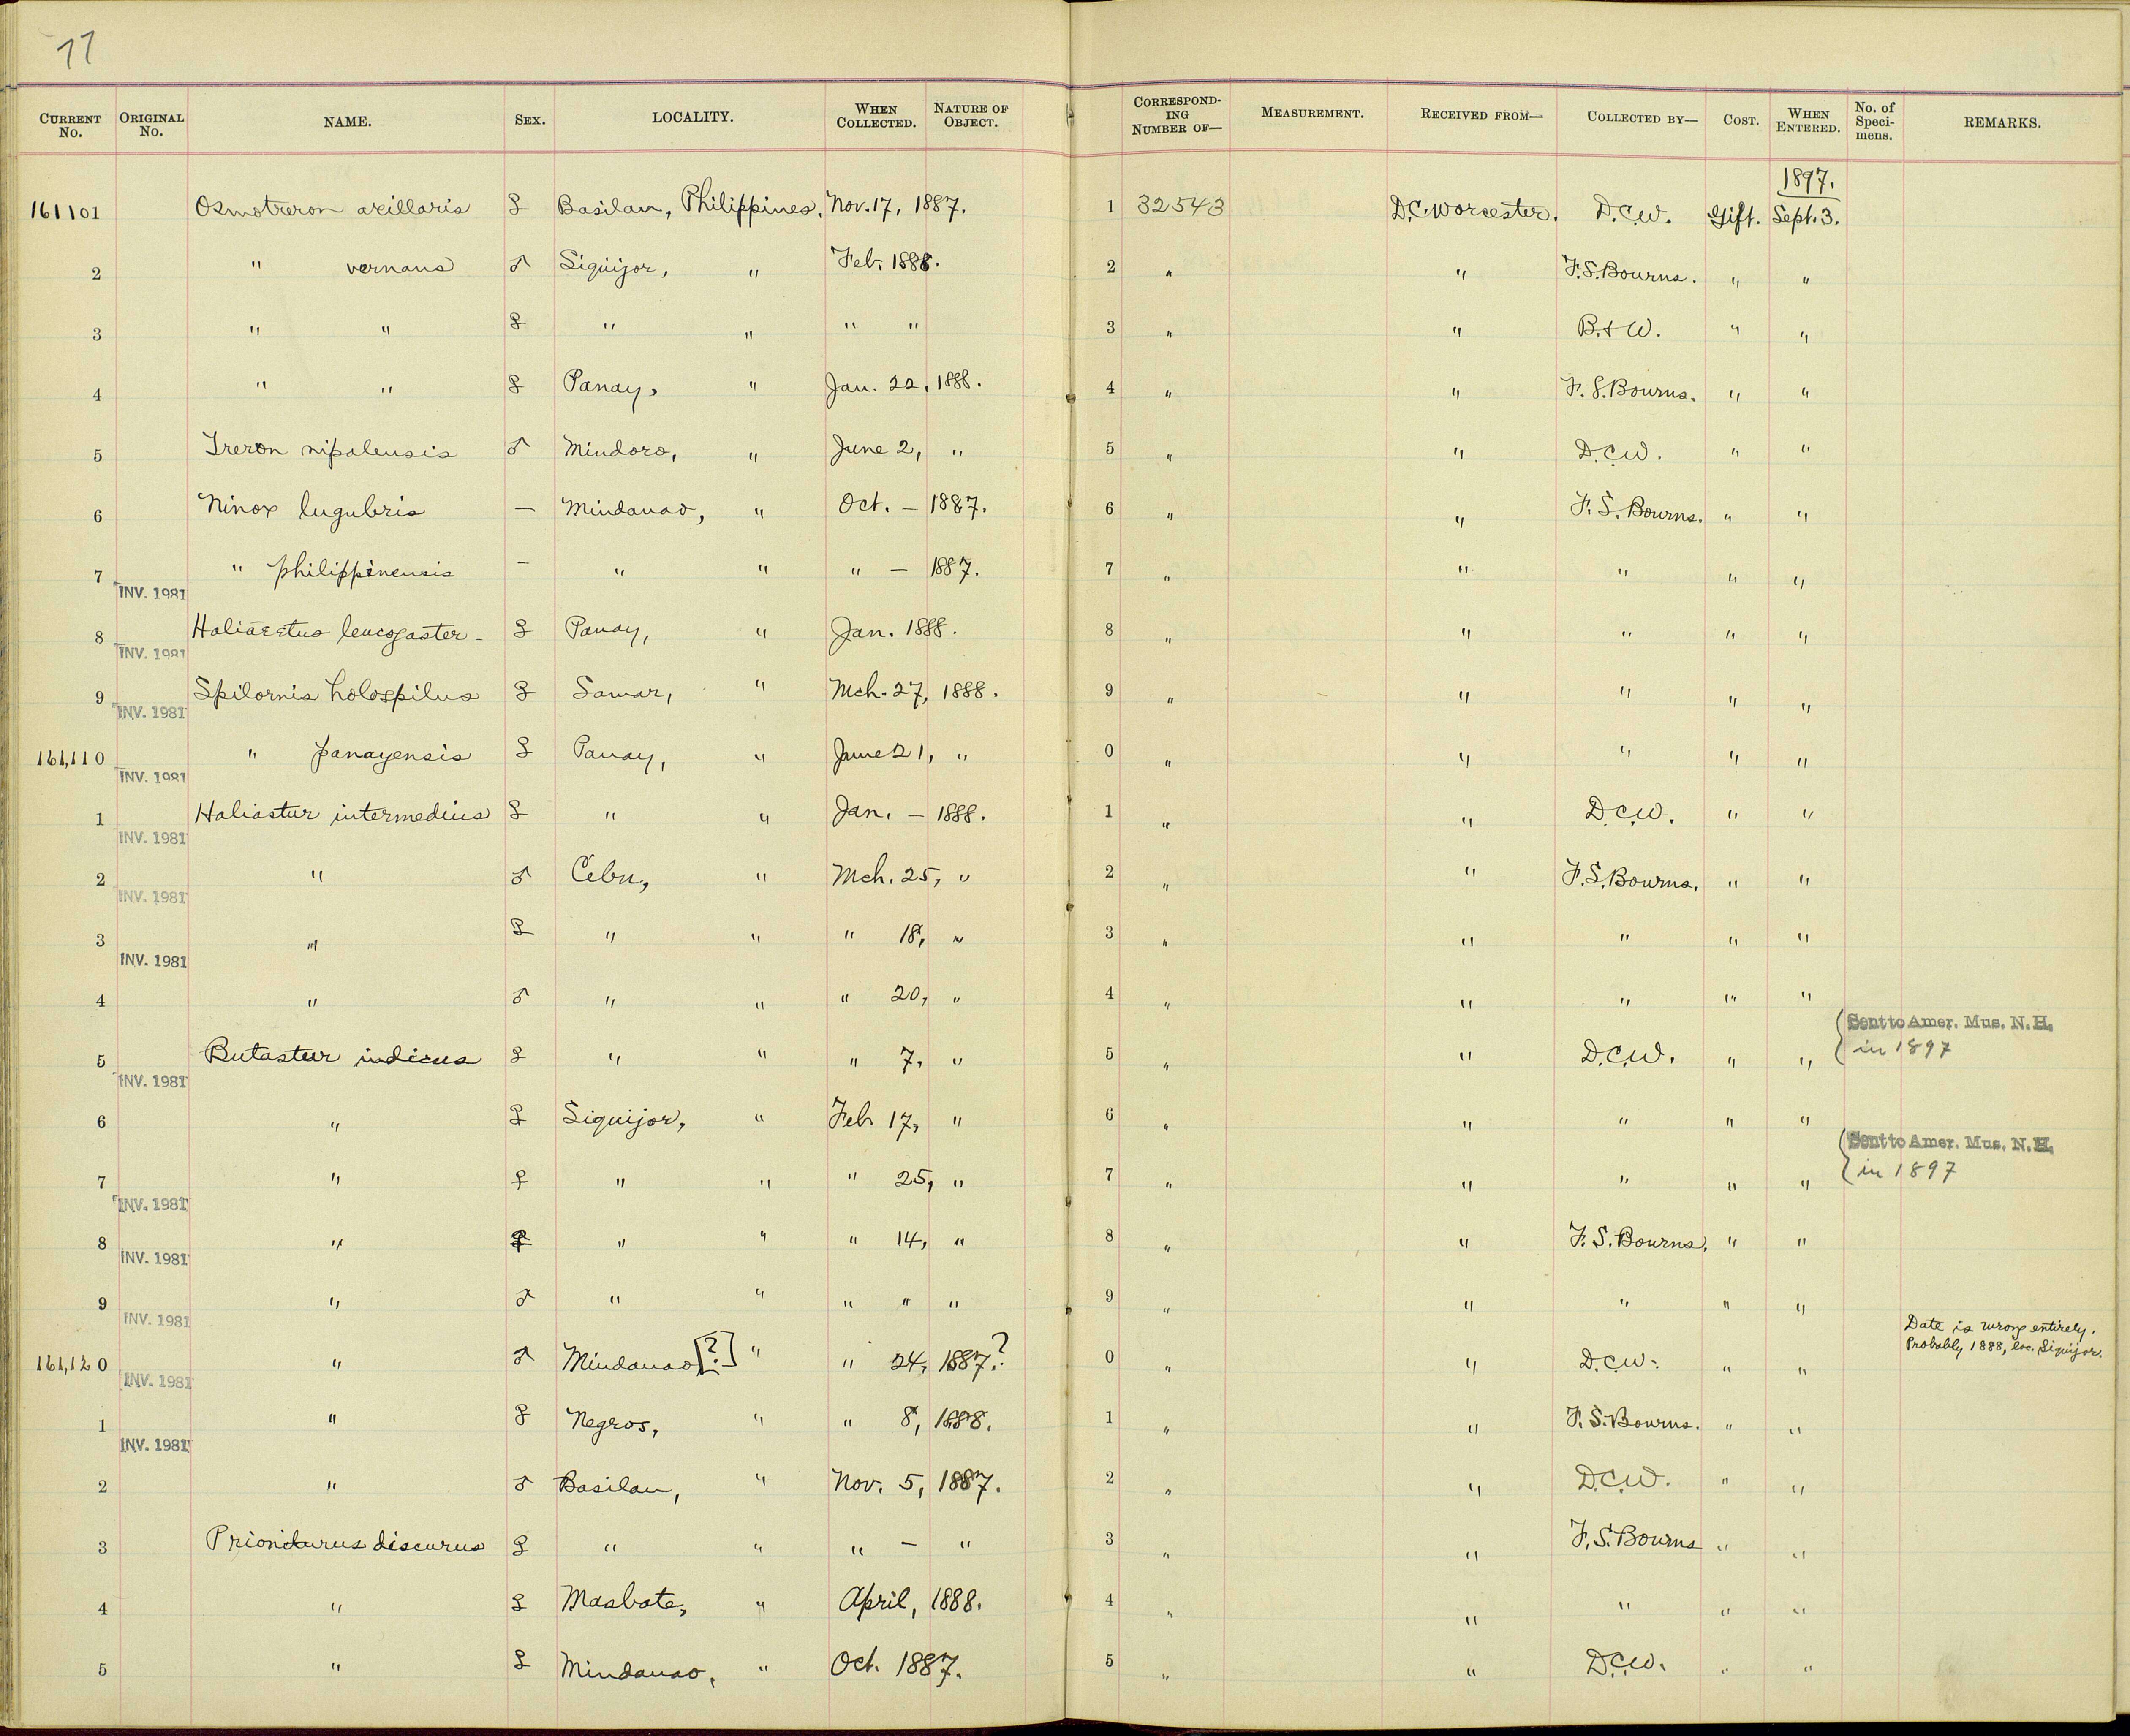 77
CURRENT No. ORIGINAL No. NAME. SEX. LOCALITY. WHEN COLLECTED. NATURE OF OBJECT. CORRESPONDING NUMBER OF— MEASUREMENT. RECEIVED FROM— COLLECTED BY— COST. WHEN ENTERED. No. of Specimens. REMARKS.
1897.
161101 Osmotreron axillaris ♀ Basilan, Philippines, Nov. 17, 1887. 1 32543 D.C. Worcester. D.C.W. Gift. Sept. 3.
2 " vernans ♂ Siquijor, " Feb. 1888. 2 " " F.S. Bourns. " "
3 " " ♀ " " " " 3 " " B. + W. " "
4 " " ♀ Panay, " Jan. 22, 1888. 4 " " F.S. Bourns. " "
5 Treron nipalensis ♂ Mindoro, " June 2, " 5 " " D.C.W. " "
6 Ninox lugubris — Mindanao, " Oct. — 1887. 6 " " F.S. Bourns. " "
7 INV. 1981 " philippinensis — " " " — 1887. 7 " " " " "
8 INV. 1981 Haliaëtus leucogaster - ♀ Panay, " Jan. 1888. 8 " " " " "
9 INV. 1981 Spilornis holospilus ♀ Samar, " Mch. 27, 1888. 9 " " " " "
161,110 INV. 1981 " panayensis ♀ Panay, " June 21, " 0 " " " " "
1 INV. 1981 Haliastur intermedius ♀ " " Jan. — 1888. 1 " " D.C.W. " "
2 INV. 1981 " ♂ Cebu, " Mch. 25, " 2 " " F.S. Bourns. " "
3 INV. 1981 " ♀ " " " 18, " 3 " " " " "
4 " ♂ " " " 20, " 4 " " " " "
5 INV. 1981 Butastur indicus ♀ " " " 7, " 5 " " D.C.W. " " Sent to Amer. Mus. N. H. in 1897
6 " ♀ Siquijor, " Feb. 17, " 6 " " " " "
7 INV. 1981 " ♀ " " " 25, " 7 " " " " " Sent to Amer. Mus. N. H. in 1897
8 INV. 1981 " ♀ " " " 14, " 8 " " F.S. Bourns. " "
9 INV. 1981 " ♂ " " " " " 9 " " " " "
161,120 INV. 1981 " ♂ Mindanao [?] " " 24, 1887.? 0 " " D.C.W. " " Date is wrong entirely. Probably 1888, loc. Siquijor.
1 INV. 1981 " ♀ Negros, " " 8, 1888. 1 " " F.S. Bourns. " "
2 " ♂ Basilan, " Nov. 5, 1887. 2 " " D.C.W. " "
3 Prioniturus discurus ♀ " " " — " 3 " " F.S. Bourns " "
4 " ♀ Masbate, " April, 1888. 4 " " " " "
5 " ♀ Mindanao, " Oct. 1887. 5 " " D.C.W. " "